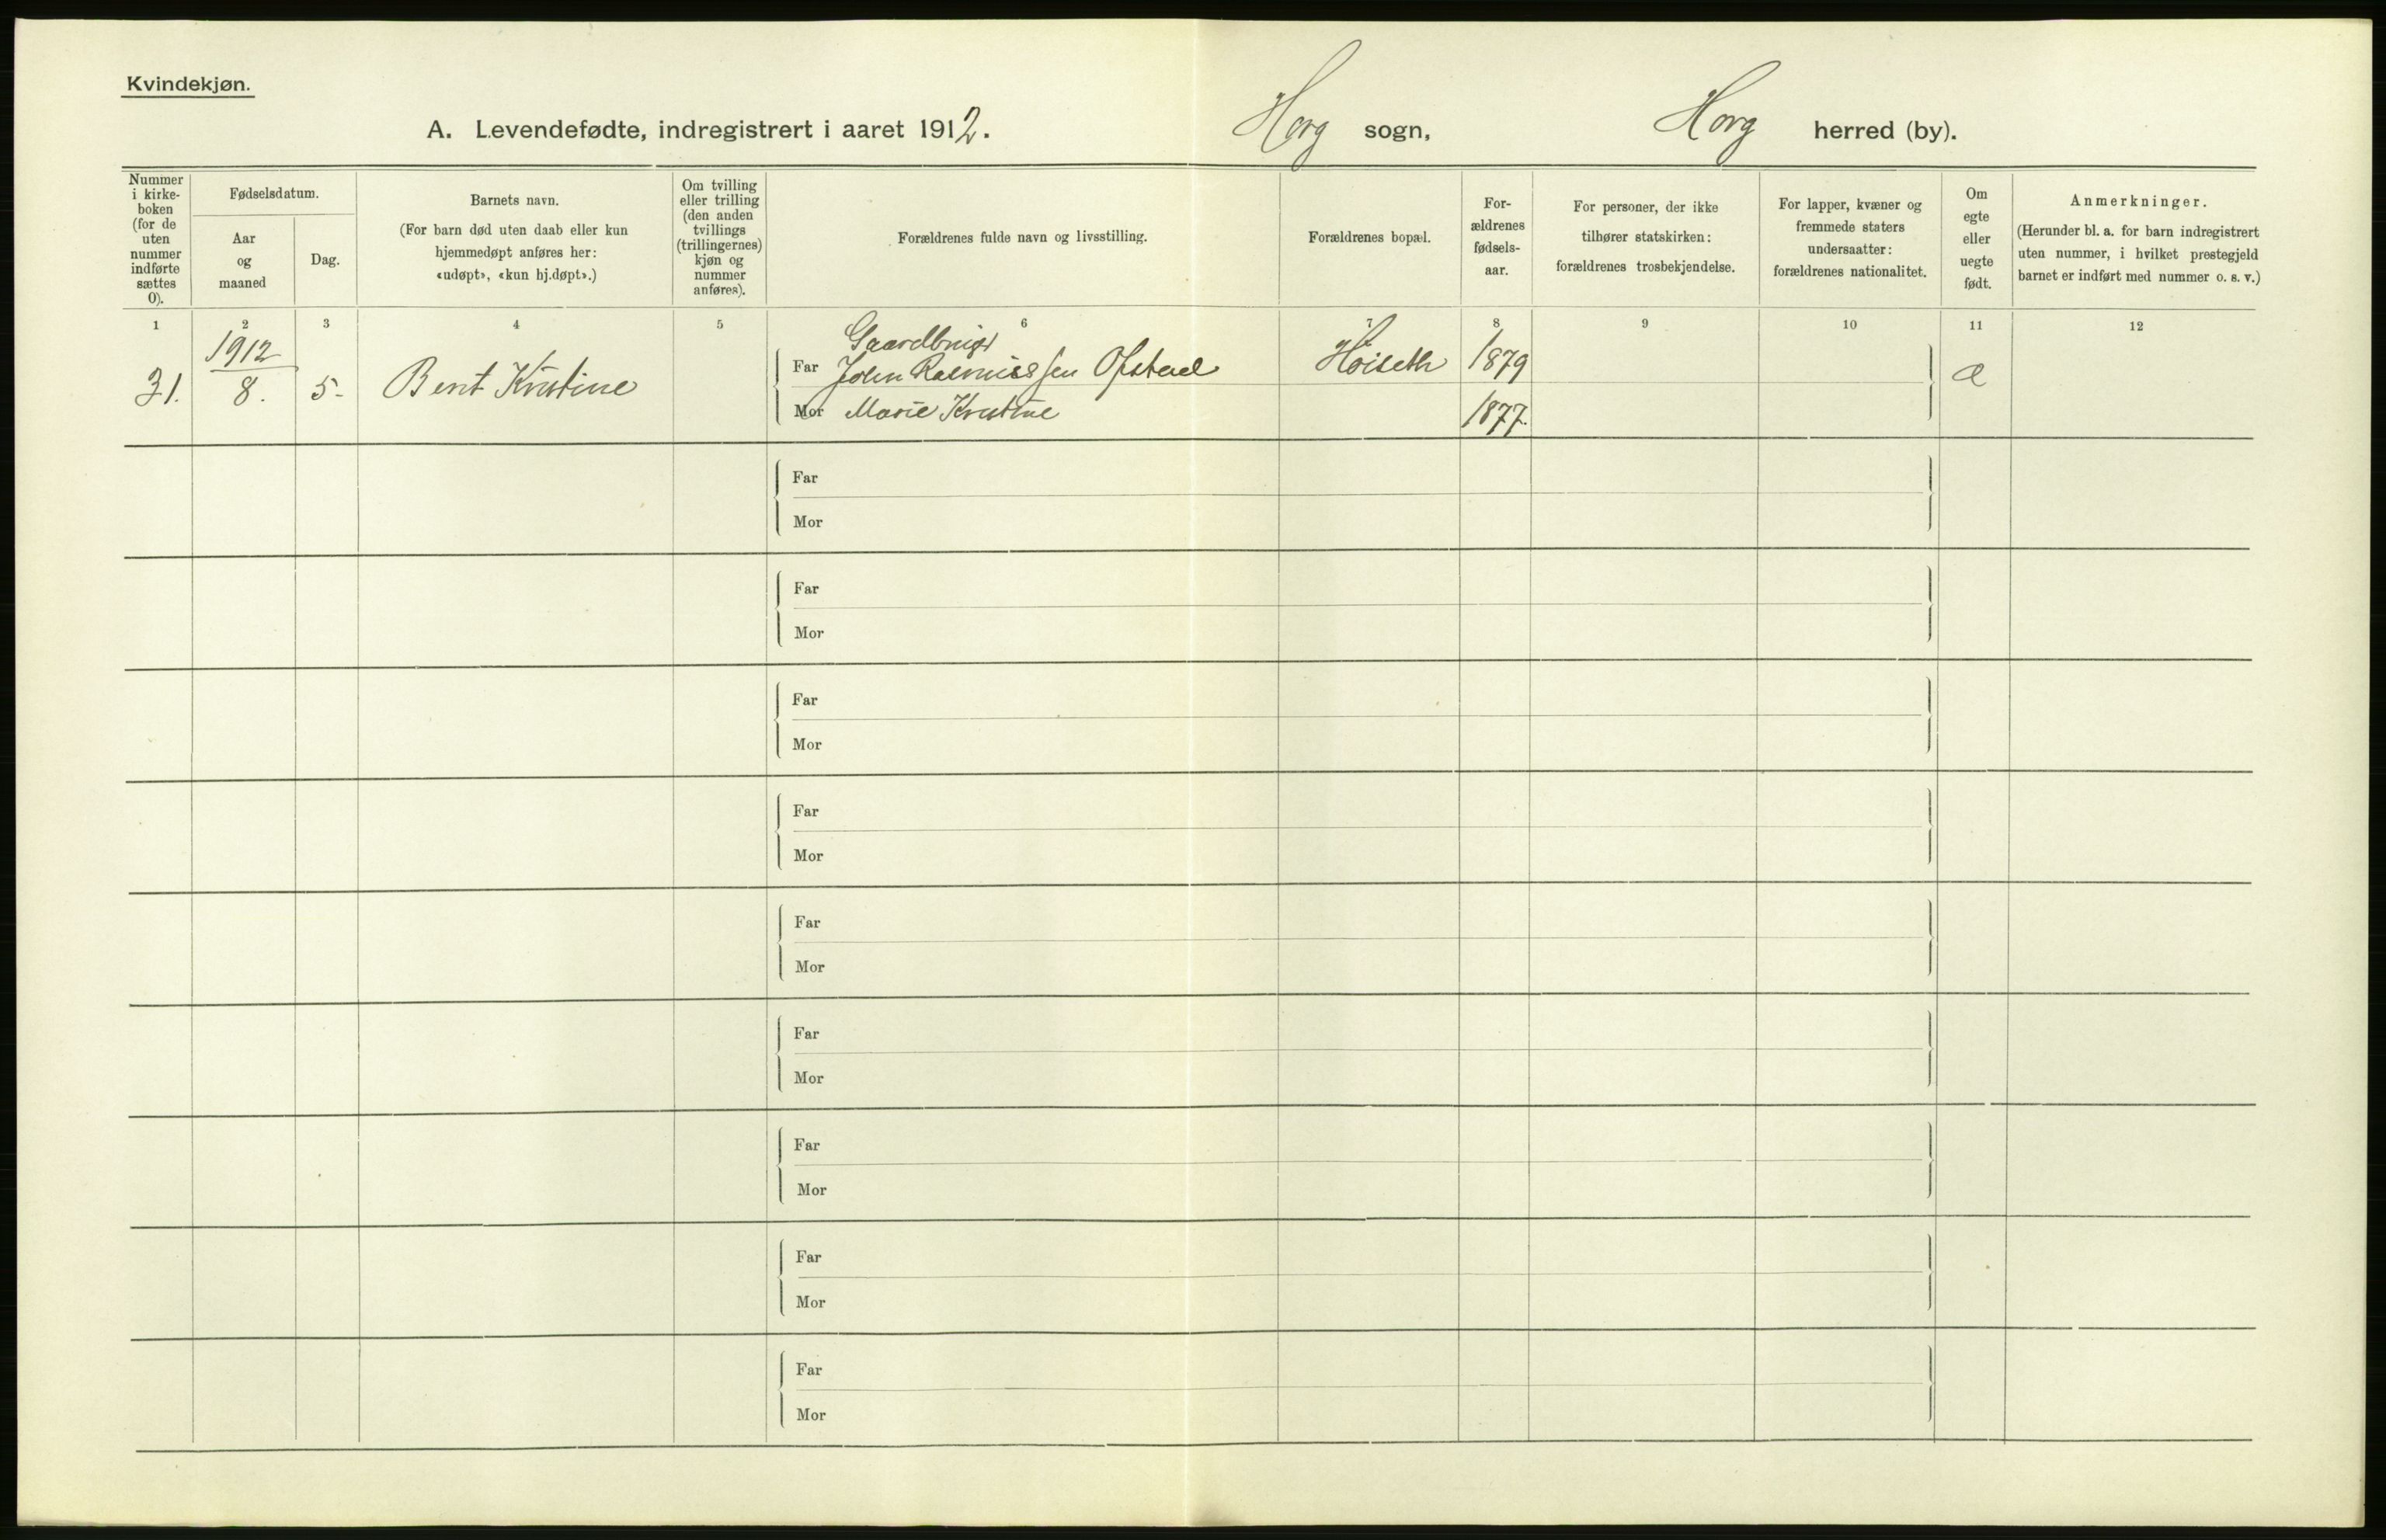 Kvindekjøn.
A. Levendefødte, indregistrert i aaret 1912.
Horg sogn,
Horg herred (by).
Nummer
i kirke-
boken
(for de
uten
nummer
indførte
sættes
0).
Fødselsdatum.
Aar
og
maaned
Dag.
Barnets navn.
(For barn død uten daab eller kun
hjemmedøpt anføres her:
«udøpt», «kun hj.døpt».)
Om tvilling
eller trilling
(den anden
tvillings
(trillingernes)
kjøn og
nummer
anføres).
Forældrenes fulde navn og livsstilling.
Forældrenes bopæl.
For-
ældrenes
fødsels-
aar.
For personer, der ikke
tilhører statskirken:
forældrenes trosbekjendelse.
For lapper, kvæner og
fremmede staters
undersaatter:
forældrenes nationalitet.
Om
egte
eller
uegte
født.
Anmerkninger.
(Herunder bl. a. for barn indregistrert
uten nummer, i hvilket prestegjeld
barnet er indført med nummer o. s. v.)
1 2 3 4 5 6 7 8 9 10 11 12
31.
1912
8.
5-
Berit Kristine
Gaardbruger
Far John Rasmussen Ofstad
Mor Marie Kristine
Høiseth
1879
1877.
æ
Far
Mor
Far
Mor
Far
Mor
Far
Mor
Far
Mor
Far
Mor
Far
Mor
Far
Mor
Far
Mor